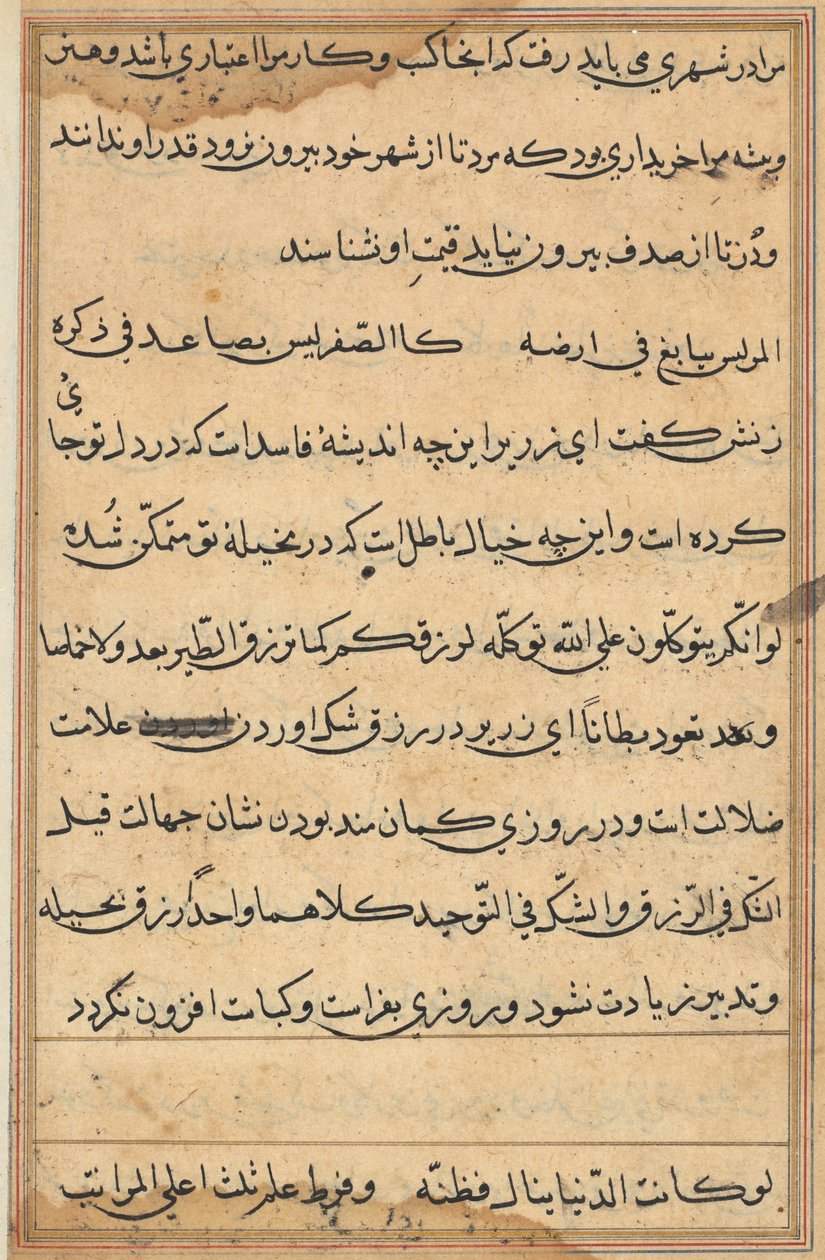 مرا در شهري مي بايد رفت كه انجا كسب و كار مرا اعتباري باشد و هنر
و پيشه مرا خريداري بود كه مرد تا از شهر خود بيرون نرود قدر او ندانند
و دُر تا از صدف بيرون نيايد قيمتِ او نشناسند
المرليس ببابغ في ارضه كاالصّقر ليس بصاعد في ذكره
زنش كفت اي زرير اين چه انديشهٔ فاسد است كه در دل تو جايُ
كرده است و اين چه خيال باطل است كه در مخيلهٔ تو متمكّن شُده
لو انّكم يتوكّلون علي اللّه توكلّه لو رزقكم كما ترزق الطّير بعد و لا خماصا
و تعود مطاناً اي زرير در رزق شك اوردن علامت
ضلالت است و در روزي كمان مند بودن نشان جهالت قيل
الشّك في الرّزق و الشكّ في التّوحيد كلاهما واحدٌ رزق بحيله
و تدبير زيادت نشود و روزي بفراست و كياست افزون نكردد
لو كانت الدّنيا ينال فظنّه و فرط علم ثلث اعلي المراتب